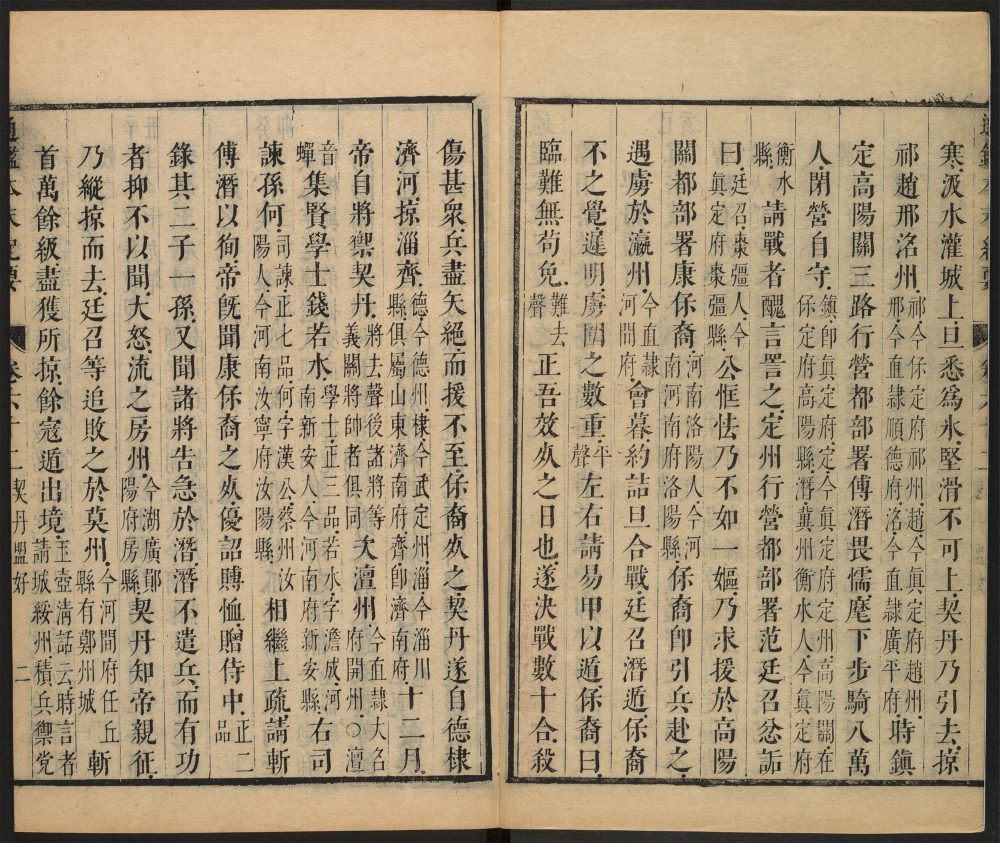 寒汲水灌城上旦悉爲氷堅滑不可上契丹乃引去掠
祁趙邢洺州祁今保定府祁州趙今眞定府趙州邢今直隸順德府洺今直隸廣平府時鎭
定高陽關三路行營都部署傅潛畏懦麾下步騎八萬
人閉營自守鎭卽眞定府定今眞定府定州高陽關在保定府高陽縣潛冀州衡水人今眞定府
衡水縣請戰者醜言詈之定州行營都部署范廷召忿詬
曰廷召棗彊人今眞定府棗彊縣公恇怯乃不如一嫗乃求援於高陽
關都部署康保裔河南洛陽人今河南河南府洛陽縣保裔卽引兵赴之
遇虜於瀛州今直隸河間府會暮約詰旦合戰廷召潛遁保裔
不之覺遲明虜圍之數重平聲左右請易甲以遁保裔曰
臨難無苟免難去聲正吾效死之日也遂決戰數十合殺
傷甚衆兵盡矢絕而援不至保裔死之契丹遂自德棣
濟河掠淄齊德今德州棣今武定州淄今淄川縣俱屬山東濟南府齊卽濟南府十二月
帝自將禦契丹將去聲後諸將等義關將帥者俱同次澶州今直隸大名府開州○澶
音蟬集賢學士錢若水學士正三品若水字澹成河南新安人今河南府新安縣右司
諫孫何司諫正七品何字漢公蔡州汝陽人今河南汝寧府汝陽縣相繼上疏請斬
傅潛以徇帝旣聞康保裔之死優詔賻恤贈侍中正二品
錄其二子一孫又聞諸將告急於潛潛不遣兵而有功
者抑不以聞大怒流之房州今湖廣鄖陽府房縣契丹知帝親征
乃縱掠而去廷召等追敗之於莫州今河間府任丘縣有鄚州城斬
首萬餘級盡獲所掠餘寇遁出境玉壺淸話云時言者請城綏州積兵禦党
通鑑本末紀要
卷六十二
契丹盟好
二